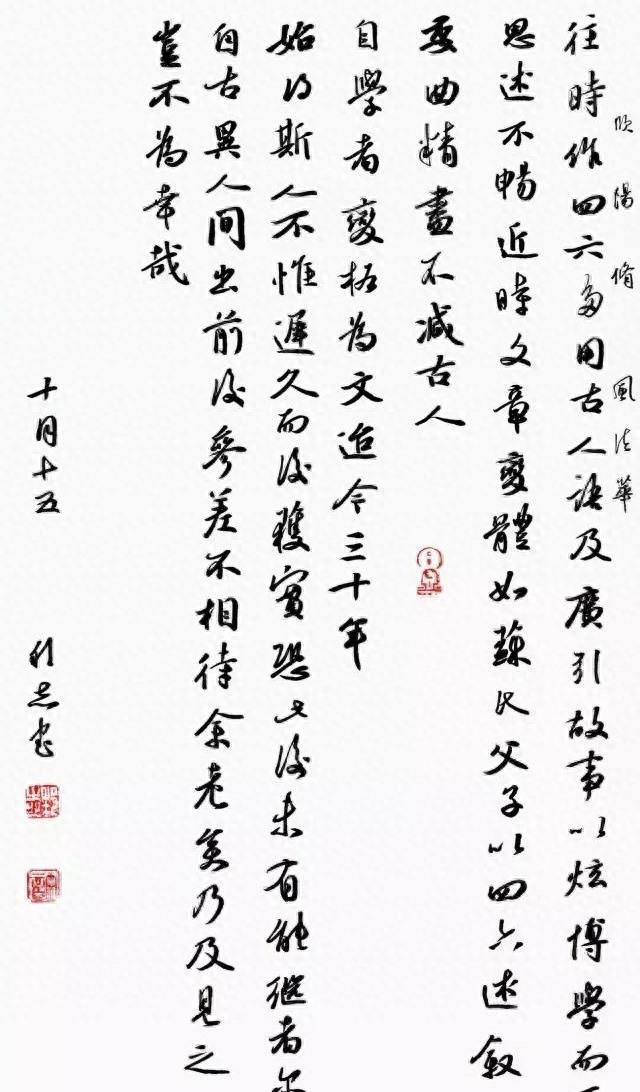 陽脩 風法華
往時作四六多用古人語及廣引故事以炫博學而
思述不暢近時文章變體如蘇氏父子以四六述敘
委曲精盡不減古人
自學者變格為文迨今三十年
始得斯人不惟遲久而後獲實恐此後未有能繼者尔
自古異人間出前後參差不相待余老矣乃及見之
豈不為幸哉
十月十五 志書